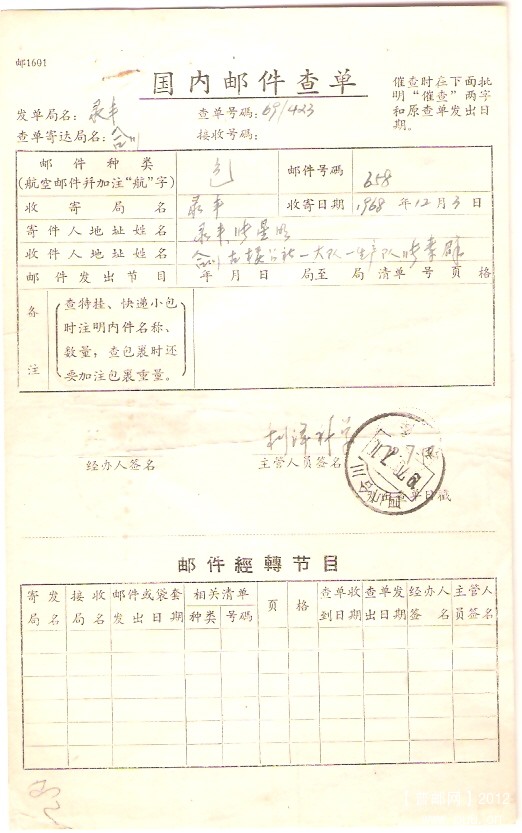 邮1601
国内邮件查单
催查时在下面批
明“催查”两字
和原查单发出日
期。
发单局名：录丰
查单号码：69/423
查单寄达局名：合川
接收号码：
邮件种类
(航空邮件并加注“航”字)
包
邮件号码
658
收寄局名
录丰
收寄日期 1968年12月3日
寄件人地址姓名
录丰
收件人地址姓名
合川 公社一大队一生产队
邮件发出节目
年月日 局至 局 清单 号 页 格
备注
查特挂、快递小包
时注明内件名称、
数量；查包裹时还
要加注包裹重量。
经办人签名
主管人员签名
日戳
四川
合川
邮件經轉节目
寄发局名
接收局名
邮件或袋套发出日期
相关清单
种类
号码
页
格
查单收到日期
查单发出日期
经办人签名
主管人员签名
2012